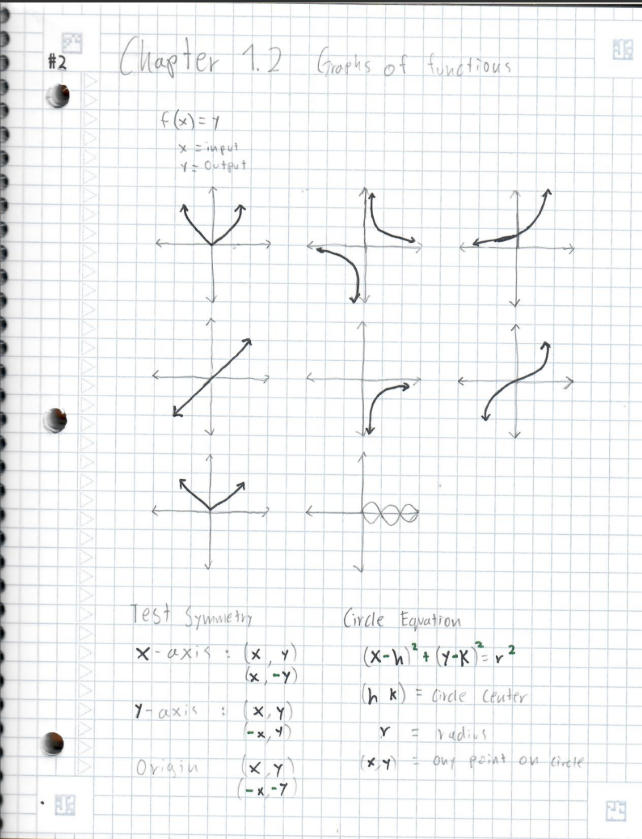 #2
Chapter 1.2 Graphs of functions
f(x) = y
x = input
y = output
Test Symmetry
x-axis : (x, y)
(x, -y)
y-axis : (x, y)
(-x, y)
Origin (x, y)
(-x, -y)
Circle Equation
(x-h)² + (y-k)² = r²
(h k) = circle center
r = radius
(x,y) = any point on circle